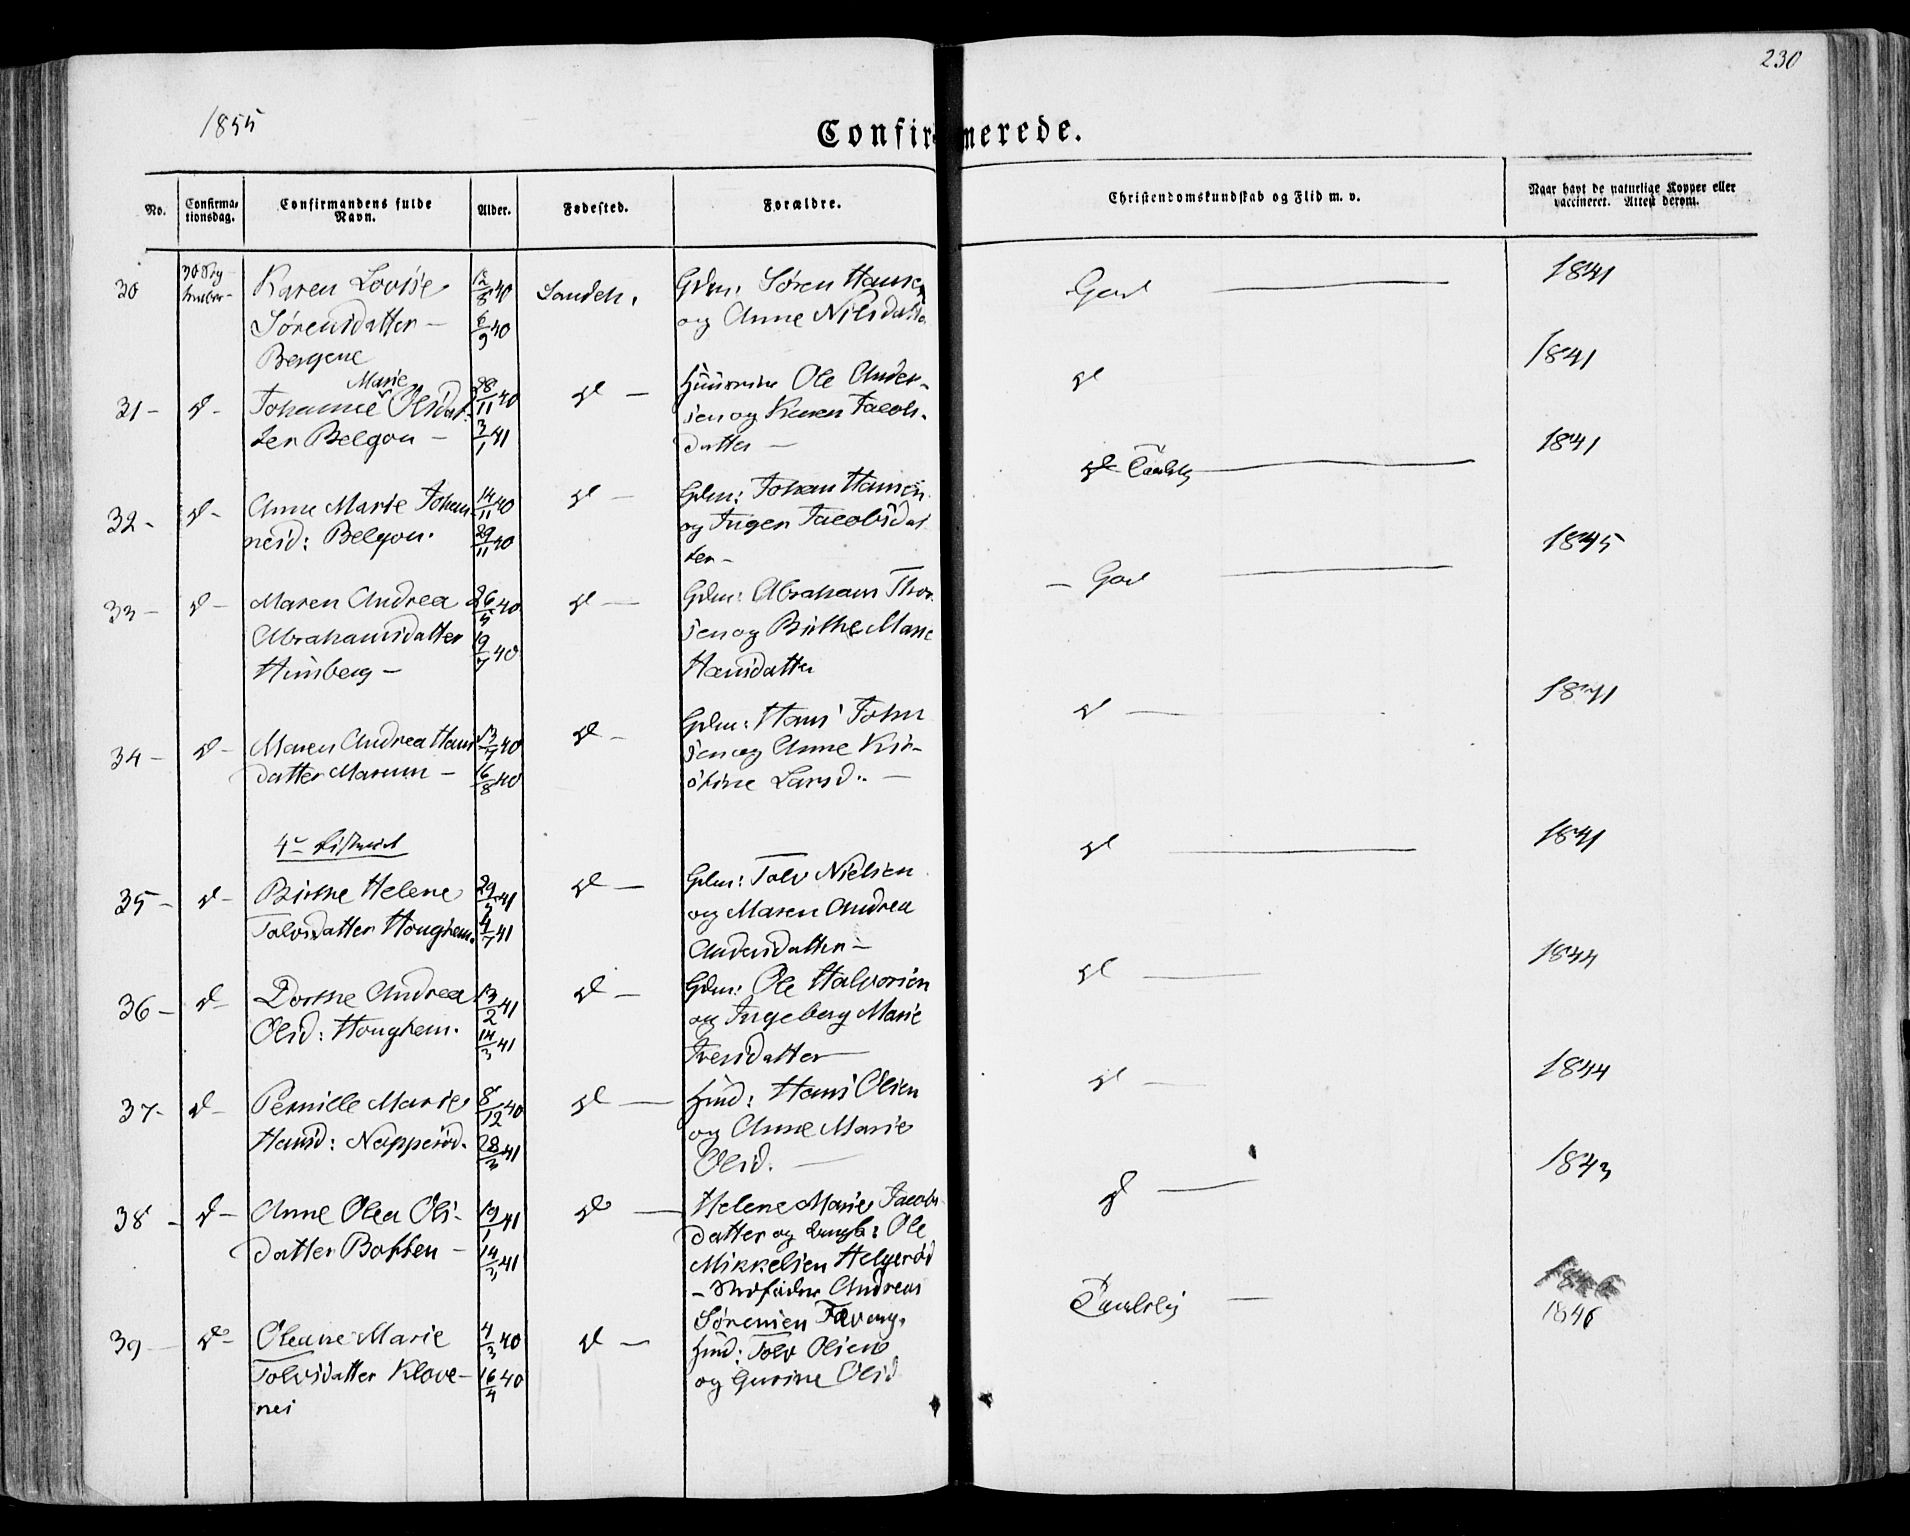 230
1855
Confirmerede.
No.
Confirma-
tionsdag.
Confirmandens fulde
Navn.
Alder.
Fødested.
Forældre.
Christendomskundskab og Flid m. v.
Naar havt de naturlige Kopper eller
vaccineret. Attest derom.
30
Karen Lovise
Sørensdatter –
Bergene
12/8 40
6/9 40
Sandeh.
Gdm. Søren Hansen
og Anne Nilsdatter
God
1841
31 –
d –
Marie
Johanne Olsdat-
ter Belgou –
28/11 40
3/1 41
d –
Ole Ander-
sen og Karen Jacobs-
datter –
d
1841
32 –
d –
Anne Marie Johan-
nesd: Belgou.
14/11 40
29/11 40
d –
Gdm: Johan Hansen
og Inger Jacobsdat-
ter –
1841
33 –
d –
Maren Andrea
Abrahamsdatter
Himberg –
26/5 40
19/7 40
d –
Gdm: Abraham Thor-
sen og Birthe Marie
Hansdatter
– God
1845
34 –
d –
Maren Andrea Hans
datter Marum –
13/7 40
16/8 40
d –
Gdm: Hans John
sen og Anne Kir-
stine Larsd. –
d –
1841
4de District
35 –
d –
Birthe Helene
Tolvsdatter Houghem.
4/7 41
d –
Gdm: Tolv Nielsen
og Maren Andrea
Andersdatter –
d
1841
36 –
d –
Dorthe Andrea
Olsd: Houghem.
13/2 41
14/3 41
d –
Gdm: Ole Halvorsen
og Ingeberg Marie
Iversdatter –
d –
1844
37 –
d –
Pernille Marie
Hansd: Napperød.
8/12 40
28/3 41
d –
Hmd: Hans Olsen
og Anne Marie
Olsd. –
d –
1844
38 –
d –
Anne Olea Ols-
datter Bokken –
19/1 41
14/3 41
d –
Helene Marie Jacobs-
datter og Ungk: Ole
Mikkelsen Helgerød
– Stedfader Andreas
Sørensen
d –
1843
39 –
d –
Oleane Marie
Tolvsdatter Klove-
nes
4/3 40
16/4 40
d –
Hmd: Tolv Olsen
og Gurine Olsd
Taalelig –
1846